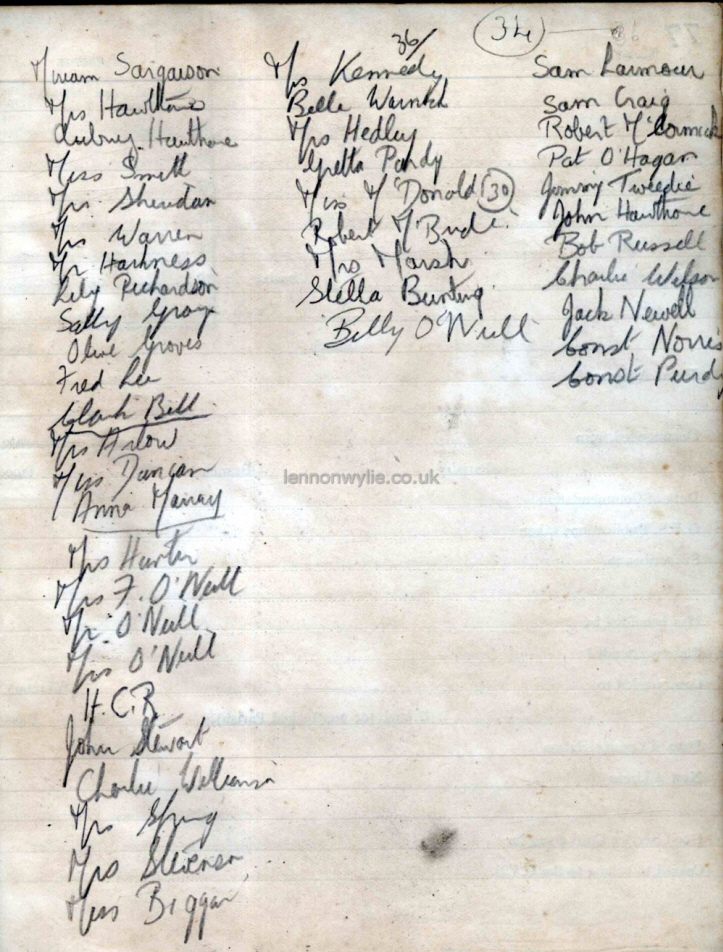 36/
34
Miriam Sargaison
Mrs Hawthorne
Aubrey Hawthorne
Miss Smith
Mrs Sheridan
Mrs Warren
Mr Harkness
Lily Richardson
Sally Gray
Olive Groves
Fred Lee
Clark Bell
Mrs Arlow
Miss Duncan
Anna
Mrs Hunter
Mrs F. O'Neill
Mr O'Neill
Mrs O'Neill
H.C.R
John Stewart
Charlie Williamson
Mrs Spring
Mrs Stevenson
Miss Biggar
Mrs Kennedy
Belle Warnock
Mrs Hedley
Gretta Purdy
Miss McDonald 30
Robert McBride
Mrs Marsh
Stella Bunting
Billy O'Neill
Sam Larmour
Sam Craig
Robert McCormick
Pat O'Hagan
Jimmy Tweedie
John Hawthorne
Bob Russell
Charlie Wilson
Jack Newell
Const Norris
Const Purdy
lennonwylie.co.uk